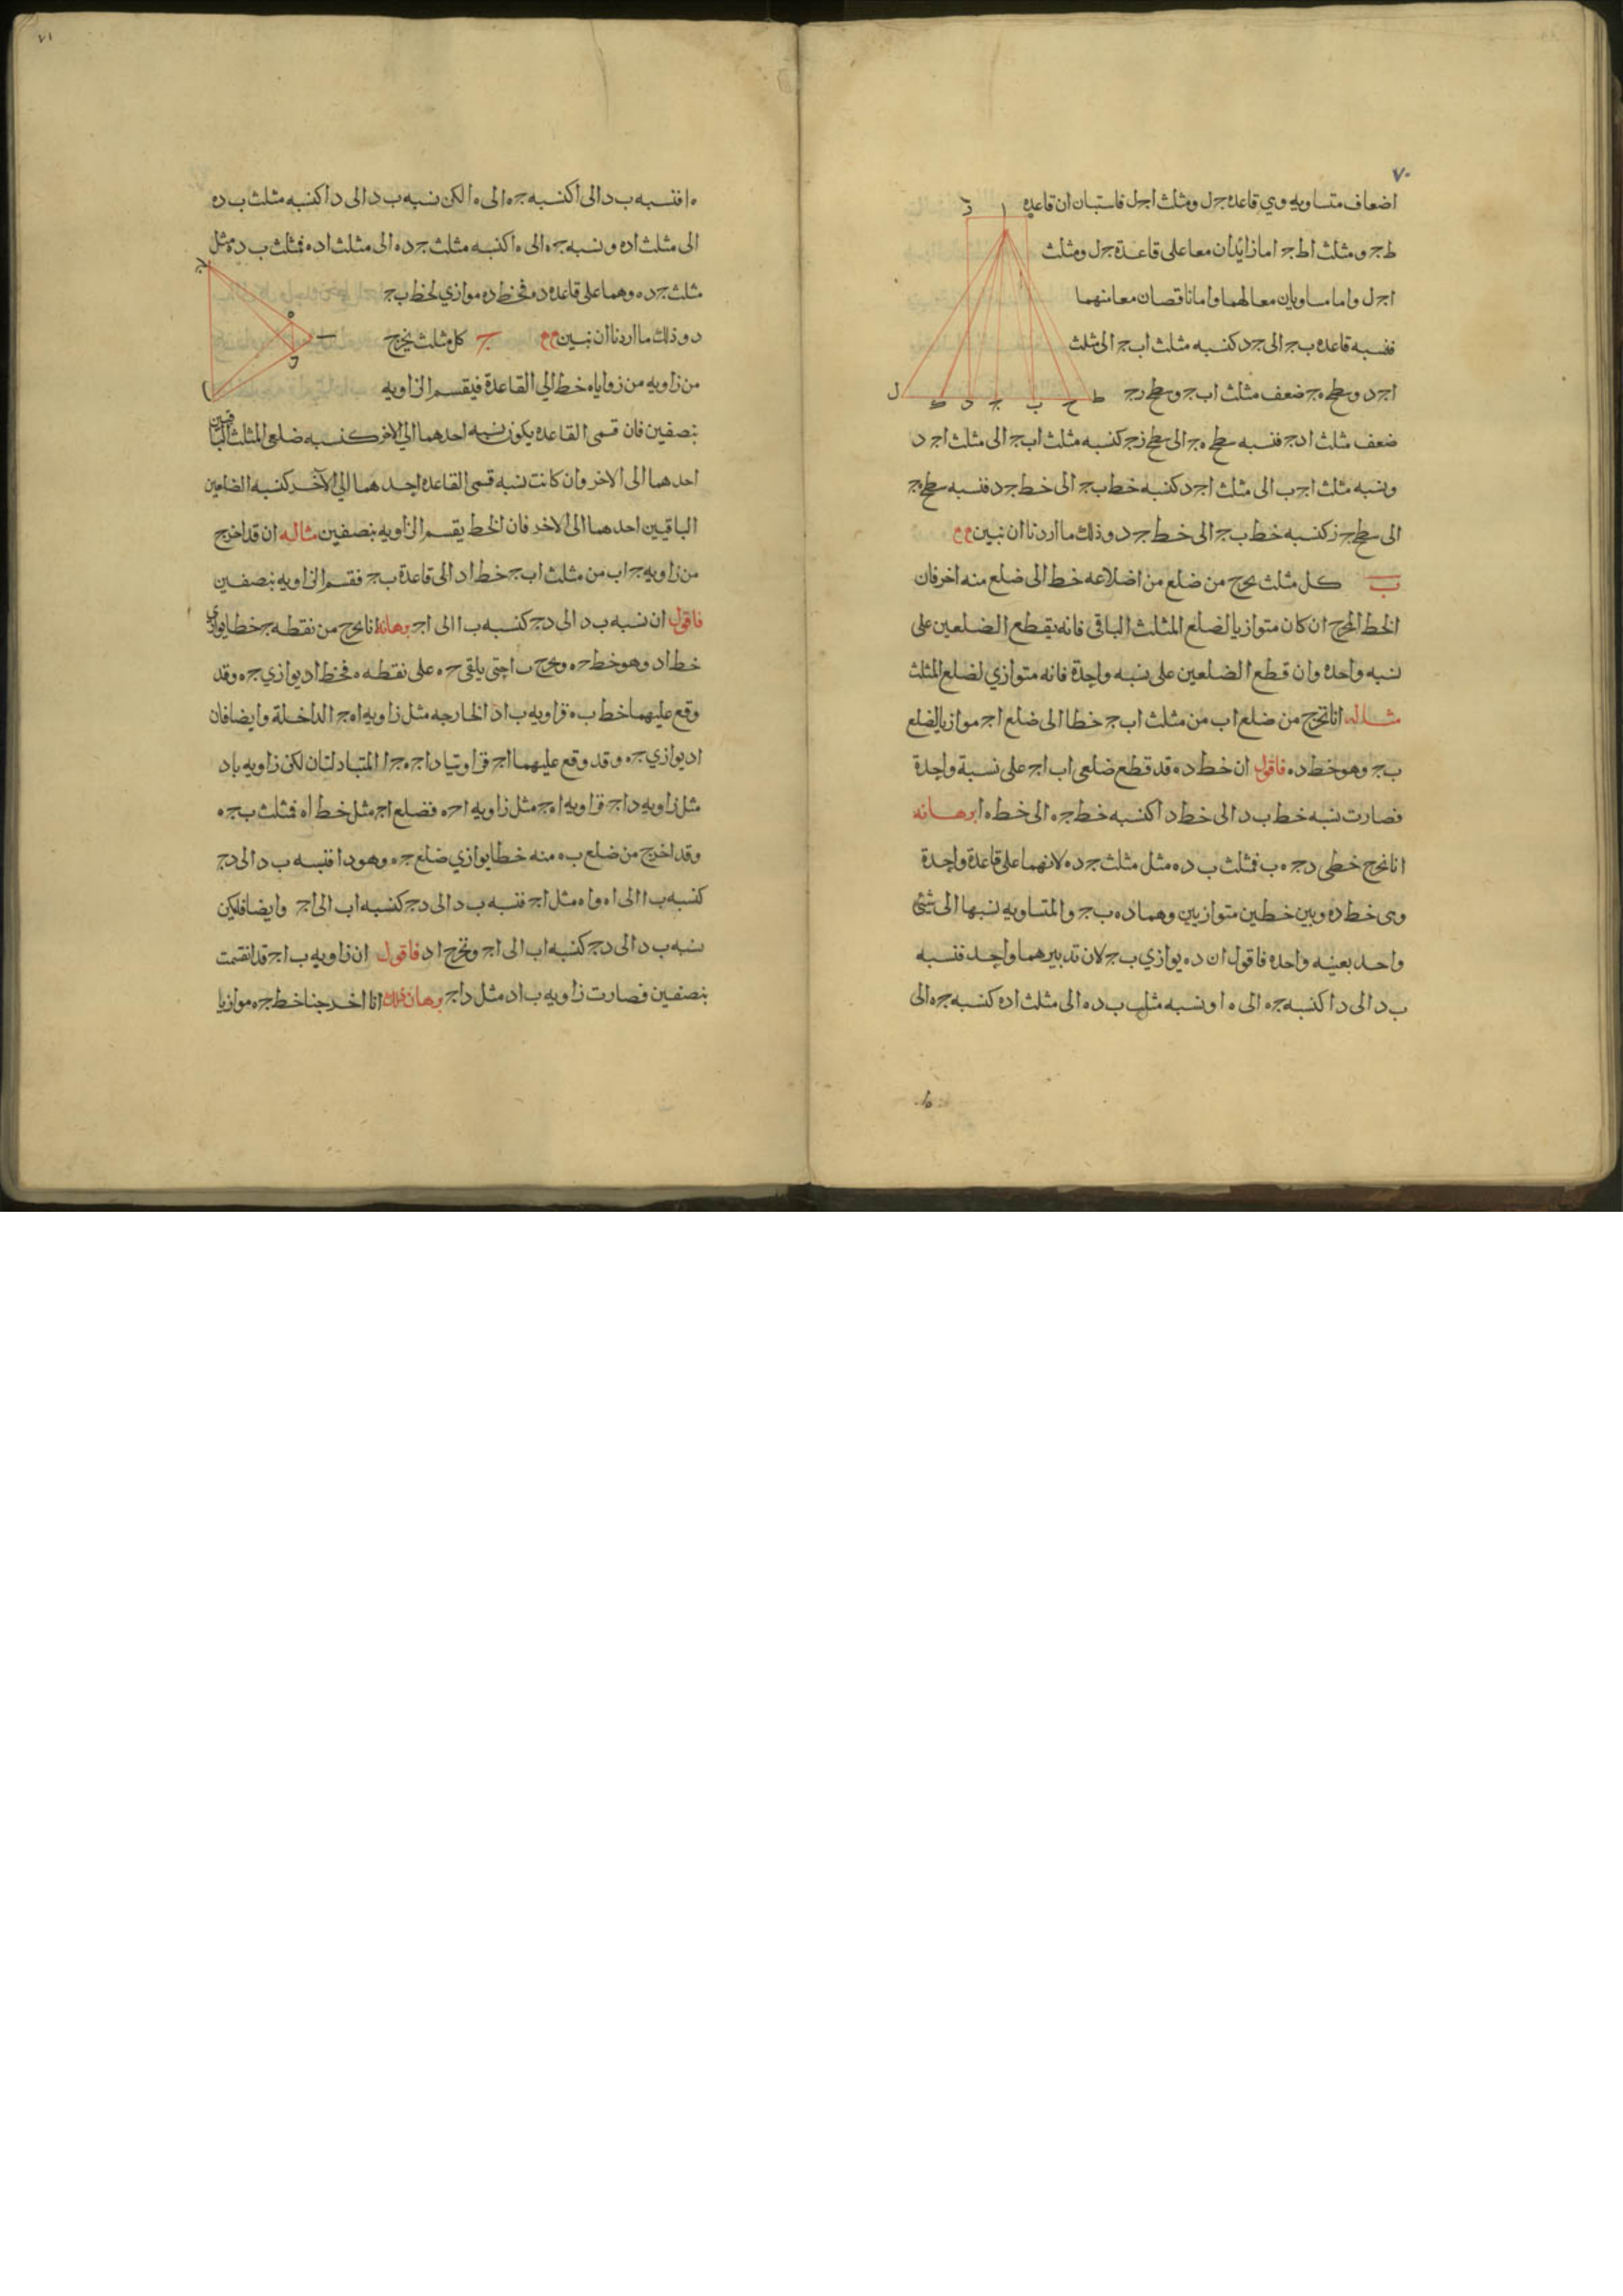 ٧٠
اضعاف متساويه وهي قاعده جل ومثلث اجل فاستبان ان قاعده
طج ومثلث اطج اما زايدان معا على قاعدة جل ومثلث
اجل واما مساويان معا لهما واما ناقصان معا منهما
فنسبه قاعده بج الى جد كنسبه مثلث ابج الى مثلث
اجد وسطح هج ضعف مثلث ابج وسطح زج
ضعف مثلث ادج فنسبه سطح هج الى سطح زج كنسبه مثلث ابج الى مثلث اجد
ونسبه مثلث اجب الى مثلث اجد كنسبه خط بج الى خط جد فنسبه سطح هج
الى سطح جز كنسبه خط بج الى خط جد وذلك ما اردنا ان نبين
ب كل مثلث يخرج من ضلع من اضلاعه خط الى ضلع منه اخر فان
الخط المخرج ان كان متوازيا لضلع المثلث الباقى فانه يقطع الضلعين على
نسبه واحده وان قطع الضلعين على نسبه واحدة فانه متوازي لضلع المثلث
مثاله انا نخرج من ضلع اب من مثلث ابج خطا الى ضلع اج موازيا لضلع
بج وهو خط ده فاقول ان خط ده قد قطع ضلعى اب اج على نسبة واحدة
فصارت نسبه خط بد الى خط دا كنسبه خط جه الى خط ها برهانه
انا نخرج خطى دج هب فمثلث بده مثل مثلث جده لانهما على قاعدة واحدة
وهى خط ده وبين خطين متوازيين وهما ده بج والمتساويه نسبها الى شئ
واحد بعينه واحده فاقول ان ده يوازي بج لان تدبيرهما واحد فنسبه
بد الى دا كنسبه جه الى ها ونسبه مثلث بده الى مثلث اده كنسبه جه الى
٧١
ها فنسبه بد الى دا كنسبه جه الى ها لكن نسبه بد الى دا كنسبه مثلث بده
الى مثلث اده ونسبه جه الى ها كنسبه مثلث جده الى مثلث اده فمثلث بده مثل
مثلث جده وهما على قاعدة ده فخط ده موازي لخط بج
وذلك ما اردنا ان نبين ج كل مثلث يخرج
من زاويه من زواياه خط الي القاعدة فيقسم الزاويه
بنصفين فان قسمى القاعده يكون نسبه احدهما الي الاخر كنسبه ضلعى المثلث الباقيين
احدهما الى الاخر وان كانت نسبه قسمى القاعده احدهما الي الآخر كنسبه الضلعين
الباقيين احدهما الى الاخر فان الخط يقسم الزاويه بنصفين مثاله ان قد اخرج
من زاويه جاب من مثلث ابج خط اد الى قاعدة بج فقسم الزاويه بنصفين
فاقول ان نسبه بد الى دج كنسبه با الى اج برهانه انا نخرج من نقطه ج خطا يوازي
خط اد وهو خط جه ونخرج با حتى يلقى جه على نقطه ه فخط اد يوازي جه وقد
وقع عليهما خط به فزاويه باد الخارجه مثل زاويه اهج الداخلة وايضا فان
اد يوازي جه وقد وقع عليهما اج فزاويتا داج هجا المتبادلتان لكن زاويه باد
مثل زاويه داج فزاويه اهج مثل زاويه اجه فضلع اج مثل خط اه فمثلث بجه
وقد اخرج من ضلع به منه خطا يوازي ضلع جه وهو دا فنسبه بد الى دج
كنسبه با الى اه واه مثل اج فنسبه بد الى دج كنسبه اب الى اج وايضا فليكن
نسبه بد الى دج كنسبه اب الى اج ونخرج اد فاقول ان زاويه باج قد انقسمت
بنصفين فصارت زاويه باد مثل داج برهان ذلك انا اخرجنا خط جه موازيا